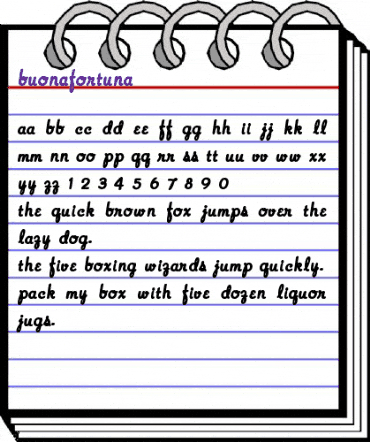 buonafortuna
aa bb cc dd ee ff gg hh ii jj kk ll
mm nn oo pp qq rr ss tt uu vv ww xx
yy zz 1 2 3 4 5 6 7 8 9 0
the quick brown fox jumps over the
lazy dog.
the five boxing wizards jump quickly.
pack my box with five dozen liquor
jugs.